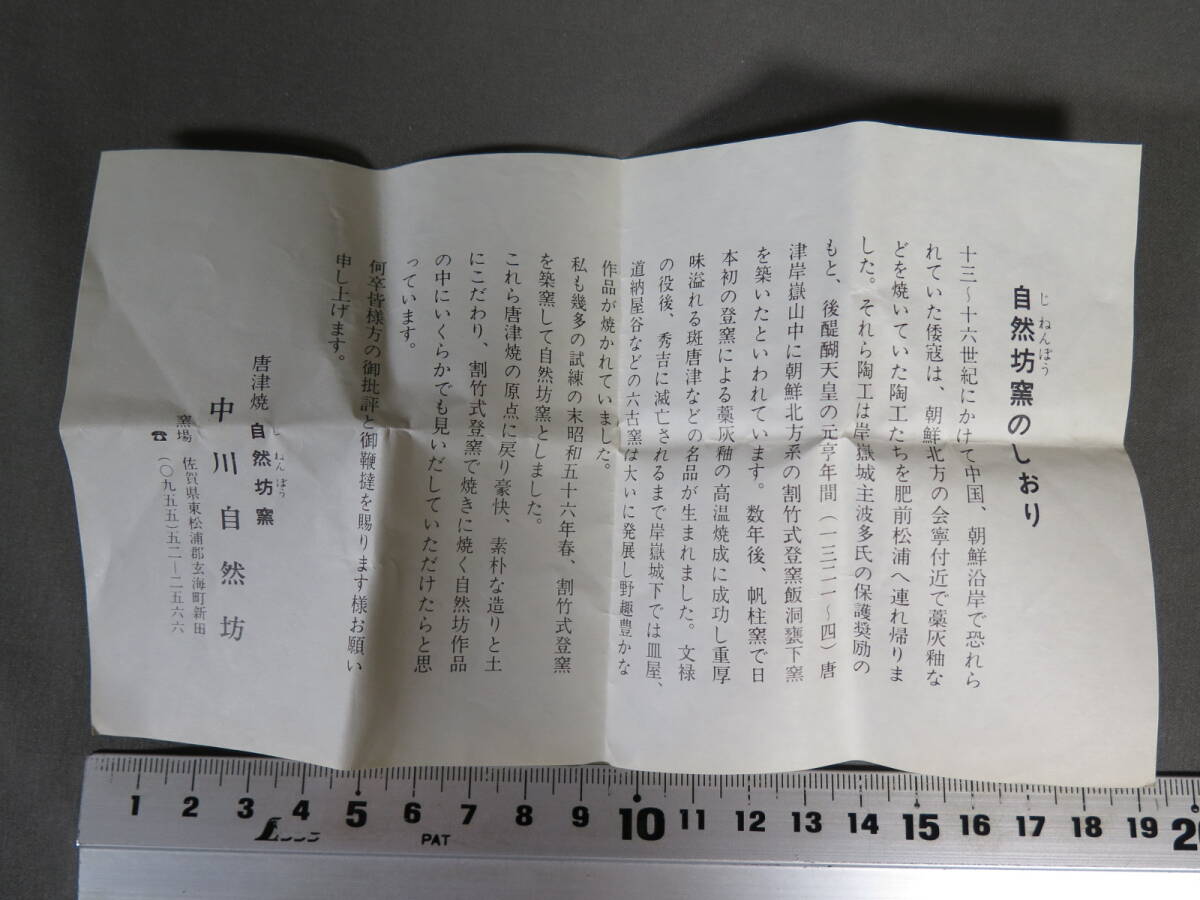 じねんぼう
自然坊窯のしおり
十三〜十六世紀にかけて中国、朝鮮沿岸で恐れら
れていた倭寇は、朝鮮北方の会寧付近で藁灰釉な
どを焼いていた陶工たちを肥前松浦へ連れ帰りま
した。それら陶工は岸嶽城主波多氏の保護奨励の
もと、後醍醐天皇の元亨年間（一三二一〜四）唐
津岸嶽山中に朝鮮北方系の割竹式登窯飯洞甕下窯
を築いたといわれています。数年後、帆柱窯で日
本初の登窯による藁灰釉の高温焼成に成功し重厚
味溢れる斑唐津などの名品が生まれました。文禄
の役後、秀吉に滅亡されるまで岸嶽城下では皿屋、
道納屋谷などの六古窯は大いに発展し野趣豊かな
作品が焼かれていました。
私も幾多の試練の末昭和五十六年春、割竹式登窯
を築窯して自然坊窯としました。
これら唐津焼の原点に戻り豪快、素朴な造りと土
にこだわり、割竹式登窯で焼きに焼く自然坊作品
の中にいくらかでも見いだしていただけたらと思
っています。
何卒皆様方の御批評と御鞭撻を賜ります様お願い
申し上げます。
じねんぼう
唐津焼 自然坊窯
中川自然坊
窯場 佐賀県東松浦郡玄海町新田
☎（〇九五五）五二－二五六六
1 2 3 4 5 6 7 8 9 10 11 12 13 14 15 16 17 18 19 20
PAT